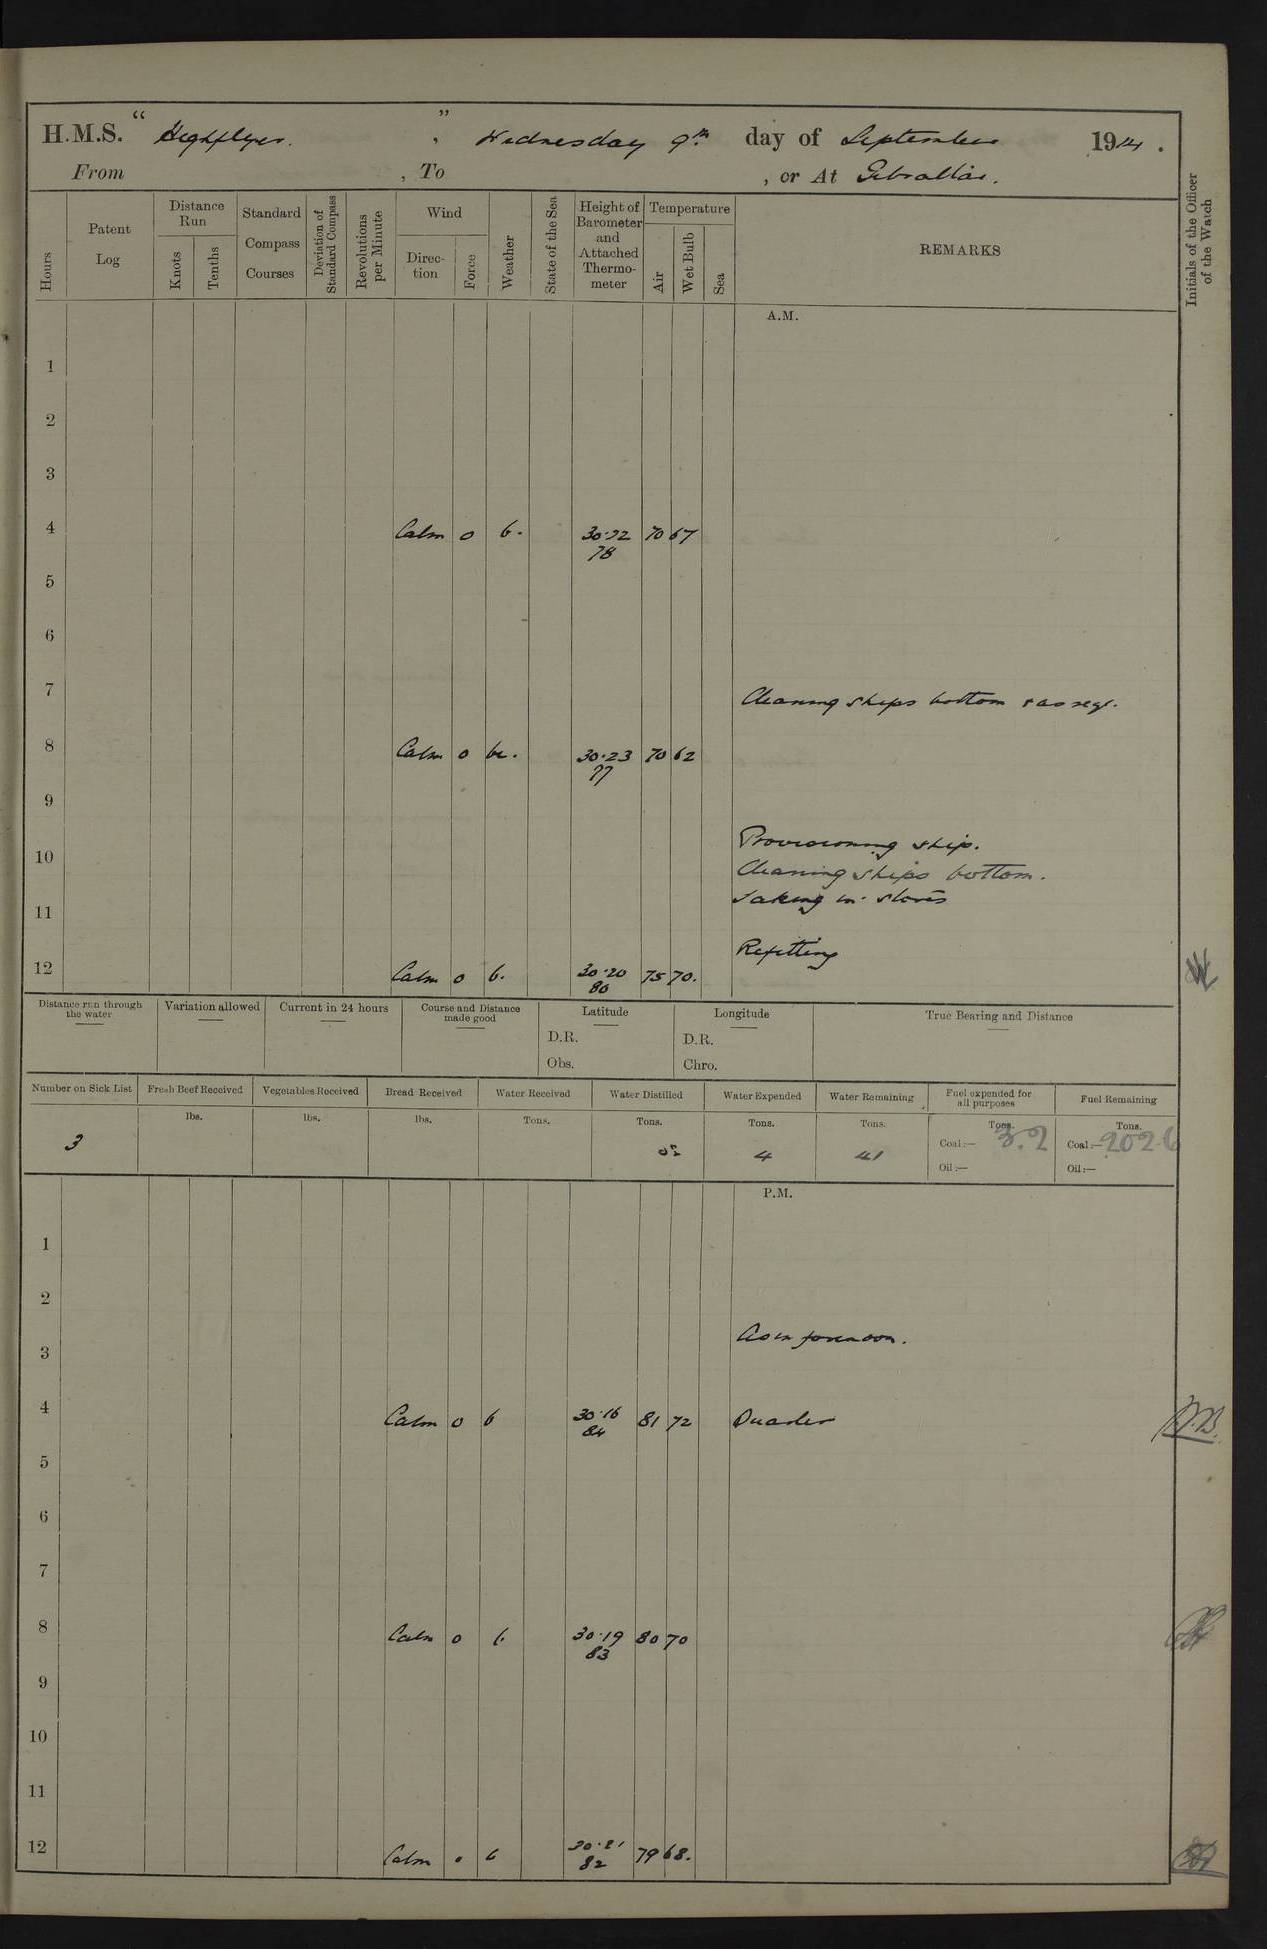 H.M.S. “ Highflyer. ” , Wednesday 9th day of September 1914.
From , To , or At Gibraltar.
Hours
Patent Log
Distance Run
Knots
Tenths
Standard Compass Courses
Deviation of Standard Compass
Revolutions per Minute
Wind
Direction
Force
Weather
State of the Sea
Height of Barometer and Attached Thermometer
Temperature
Air
Wet Bulb
Sea
REMARKS
Initials of the Officer of the Watch
A.M.
1
2
3
4 Calm 0 b. 30.22 70 67
78
5
6
7 Cleaning ships bottom & as reqr.
8 Calm 0 bc. 30.23 70 62
77
9
Provisioning ship.
10
Cleaning ships bottom.
11 Taking in stores
Refitting
12 Calm 0 b. 30.20 75 70.
80
Distance run through the water
Variation allowed
Current in 24 hours
Course and Distance made good
Latitude
D.R.
Obs.
Longitude
D.R.
Chro.
True Bearing and Distance
Number on Sick List
3
Fresh Beef Received
lbs.
Vegetables Received
lbs.
Bread Received
lbs.
Water Received
Tons.
Water Distilled
Tons.
Water Expended
Tons.
4
Water Remaining
Tons.
41
Fuel expended for all purposes
Tons.
Coal:— 3.2
Oil:—
Fuel Remaining
Tons.
Coal:— 202.6
Oil:—
P.M.
1
2
As in forenoon.
3
4 Calm 0 b 30.16 81 72
84
5
6
7
8 Calm 0 b 30.19 80 70
83
9
10
11
12 Calm 0 b 30.21 79 68.
82